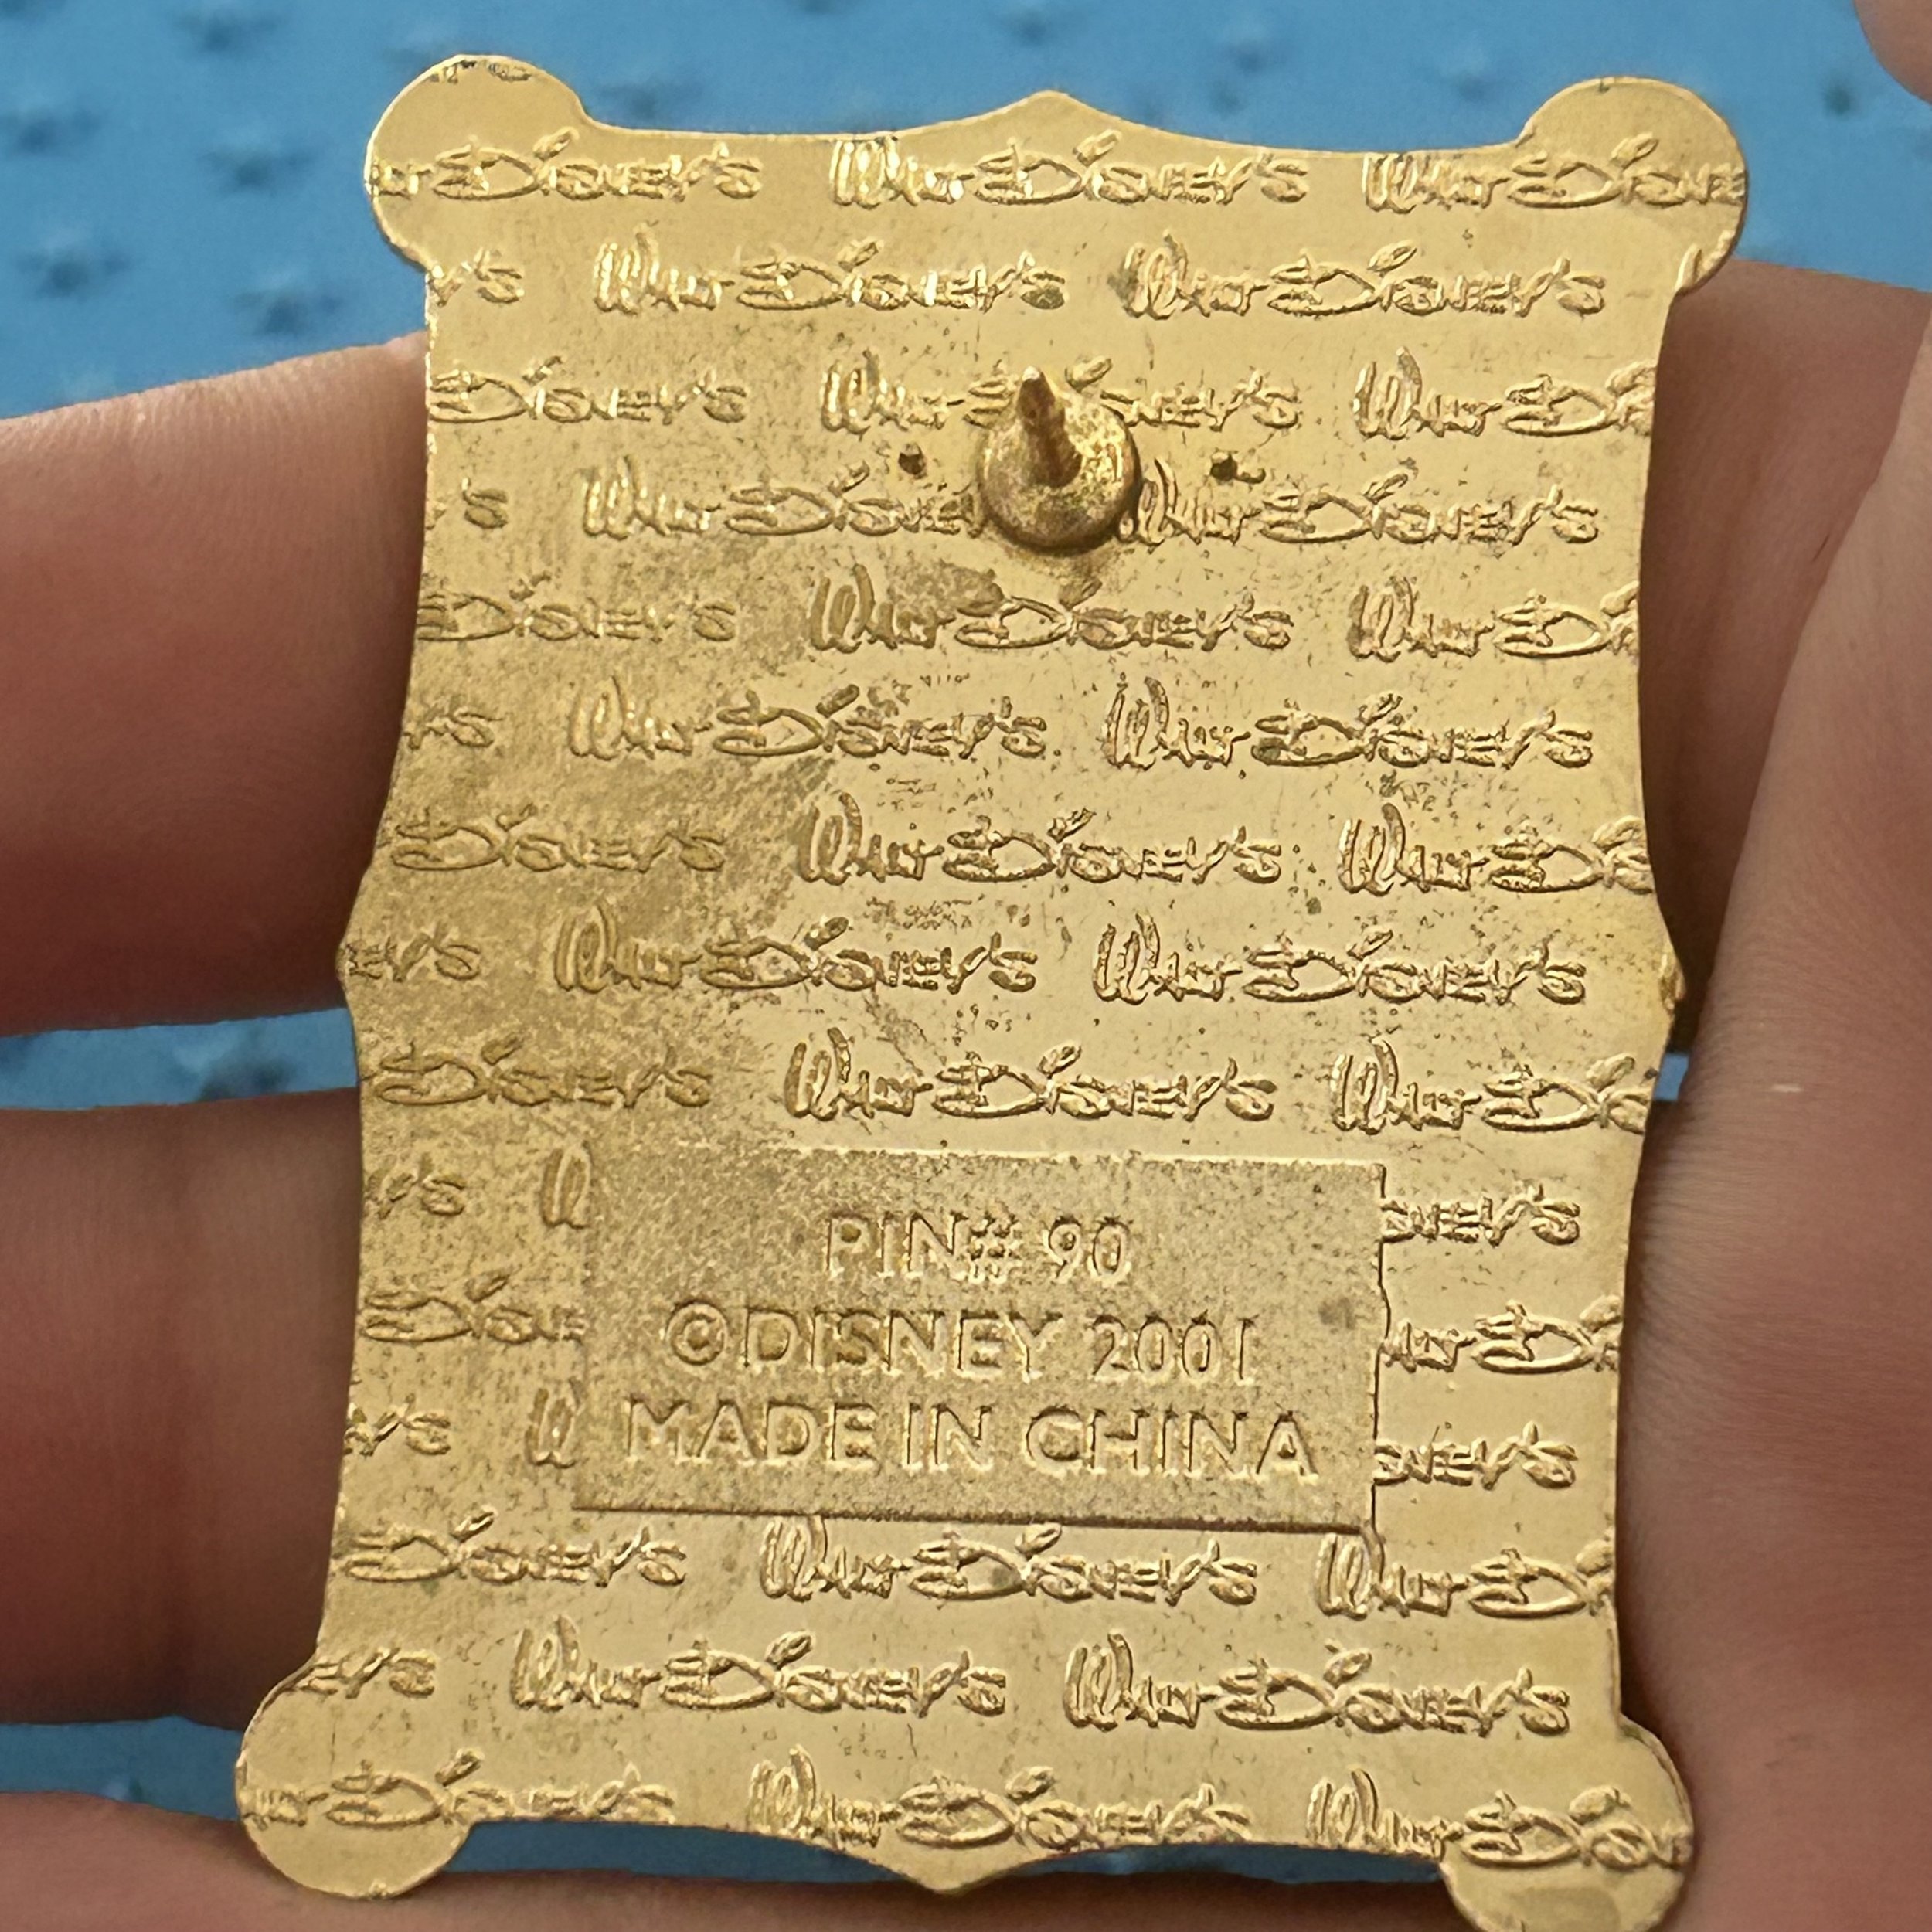 Walt Disney's Walt Disney's Walt Disne
y's Walt Disney's Walt Disney's
Disney's Walt Disney's Walt D
's Walt Disney Walt Disney's
Disney's Walt Disney's Walt D
y's Walt Disney's Walt Disney's
Disney's Walt Disney's Walt D
ey's Walt Disney's Walt Disney's
Disney's Walt Disney's Walt D
y's W ney's
PIN# 90
Disne lt D
©DISNEY 2001
y's W ney's
MADE IN CHINA
Disney's Walt Disney's Walt D
ey's Walt Disney's Walt Disney's
lt Disney's Walt Disney's Walt Disn